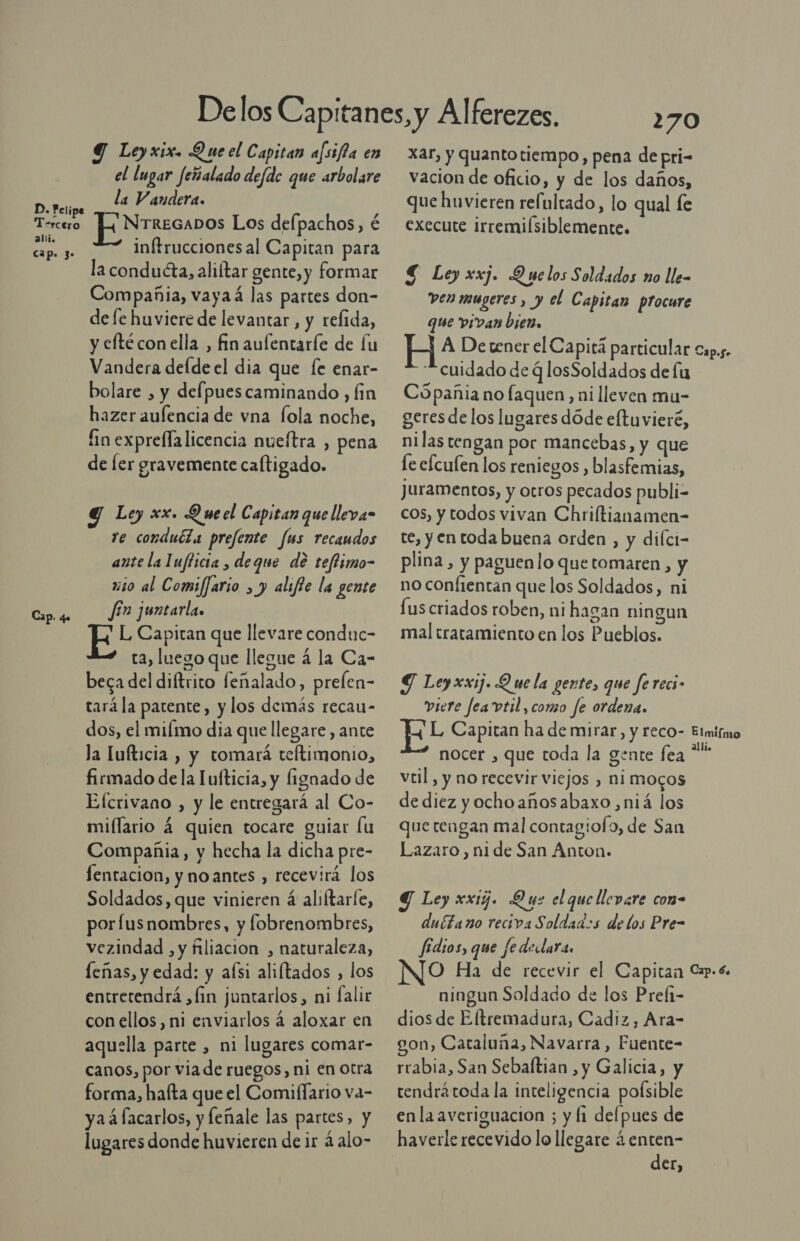 De los Capitanes, y Alferezes. 270
¶ Ley xix. Que el Capitan assista en
el lugar señalado desde que arbolare
la Vandera.
D. Felipe
Tercero
alli.
cap. 3.
ENTREGADOS Los despachos, é
instrucciones al Capitan para
la conducta, alistar gente, y formar
Compañia, vaya á las partes don-
de se huviere de levantar, y resida,
y esté con ella, sin ausentarse de su
Vandera desde el dia que se enar-
bolare, y despues caminando, sin
hazer ausencia de vna sola noche,
sin expressa licencia nuestra, pena
de ser gravemente castigado.
¶ Ley xx. Que el Capitan que lleva-
re conducta presente sus recaudos
ante la Iusticia, de que dè testimo-
nio al Comissario, y aliste la gente
sin juntarla.
Cap. 4.
EL Capitan que llevare conduc-
ta, luego que llegue á la Ca-
beça del distrito señalado, presen-
tará la patente, y los demás recau-
dos, el mismo dia que llegare, ante
la Iusticia, y tomará testimonio,
firmado de la Iusticia, y signado de
Escrivano, y le entregará al Co-
missario á quien tocare guiar su
Compañia, y hecha la dicha pre-
sentacion, y no antes, recevirá los
Soldados, que vinieren á alistarse,
por sus nombres, y sobrenombres,
vezindad, y filiacion, naturaleza,
señas, y edad: y assi alistados, los
entretendrá, sin juntarlos, ni salir
con ellos, ni enviarlos á aloxar en
aquella parte, ni lugares comar-
canos, por via de ruegos, ni en otra
forma, hasta que el Comissario va-
ya á sacarlos, y señale las partes, y
lugares donde huvieren de ir á alo-
xar, y quanto tiempo, pena de pri-
vacion de oficio, y de los daños,
que huvieren resultado, lo qual se
execute irremissiblemente.
¶ Ley xxj. Que los Soldados no lle-
ven mugeres, y el Capitan procure
que vivan bien.
HA De tener el Capitã particular Cap. 5.
cuidado de q̃ los Soldados de su
Cõpañia no saquen, ni lleven mu-
geres de los lugares dõde estuvierẽ,
ni las tengan por mancebas, y que
se escusen los reniegos, blasfemias,
juramentos, y otros pecados publi-
cos, y todos vivan Christianamen-
te, y en toda buena orden, y disci-
plina, y paguen lo que tomaren, y
no consientan que los Soldados, ni
sus criados roben, ni hagan ningun
mal tratamiento en los Pueblos.
¶ Ley xxij. Que la gente, que se reci-
viere sea vtil, como se ordena.
EL Capitan ha de mirar, y reco- El mismo
alli.
nocer, que toda la gente sea
vtil, y no recevir viejos, ni moços
de diez y ocho años abaxo, ni á los
que tengan mal contagioso, de San
Lazaro, ni de San Anton.
¶ Ley xxiij. Que el que llevare con-
ducta no reciva Soldados de los Pre-
sidios, que se declara.
NO Ha de recevir el Capitan Cap. 6.
ningun Soldado de los Presi-
dios de Estremadura, Cadiz, Ara-
gon, Cataluña, Navarra, Fuente-
rrabia, San Sebastian, y Galicia, y
tendrá toda la inteligencia possible
en la averiguacion; y si despues de
haverle recevido lo llegare á enten-
der,